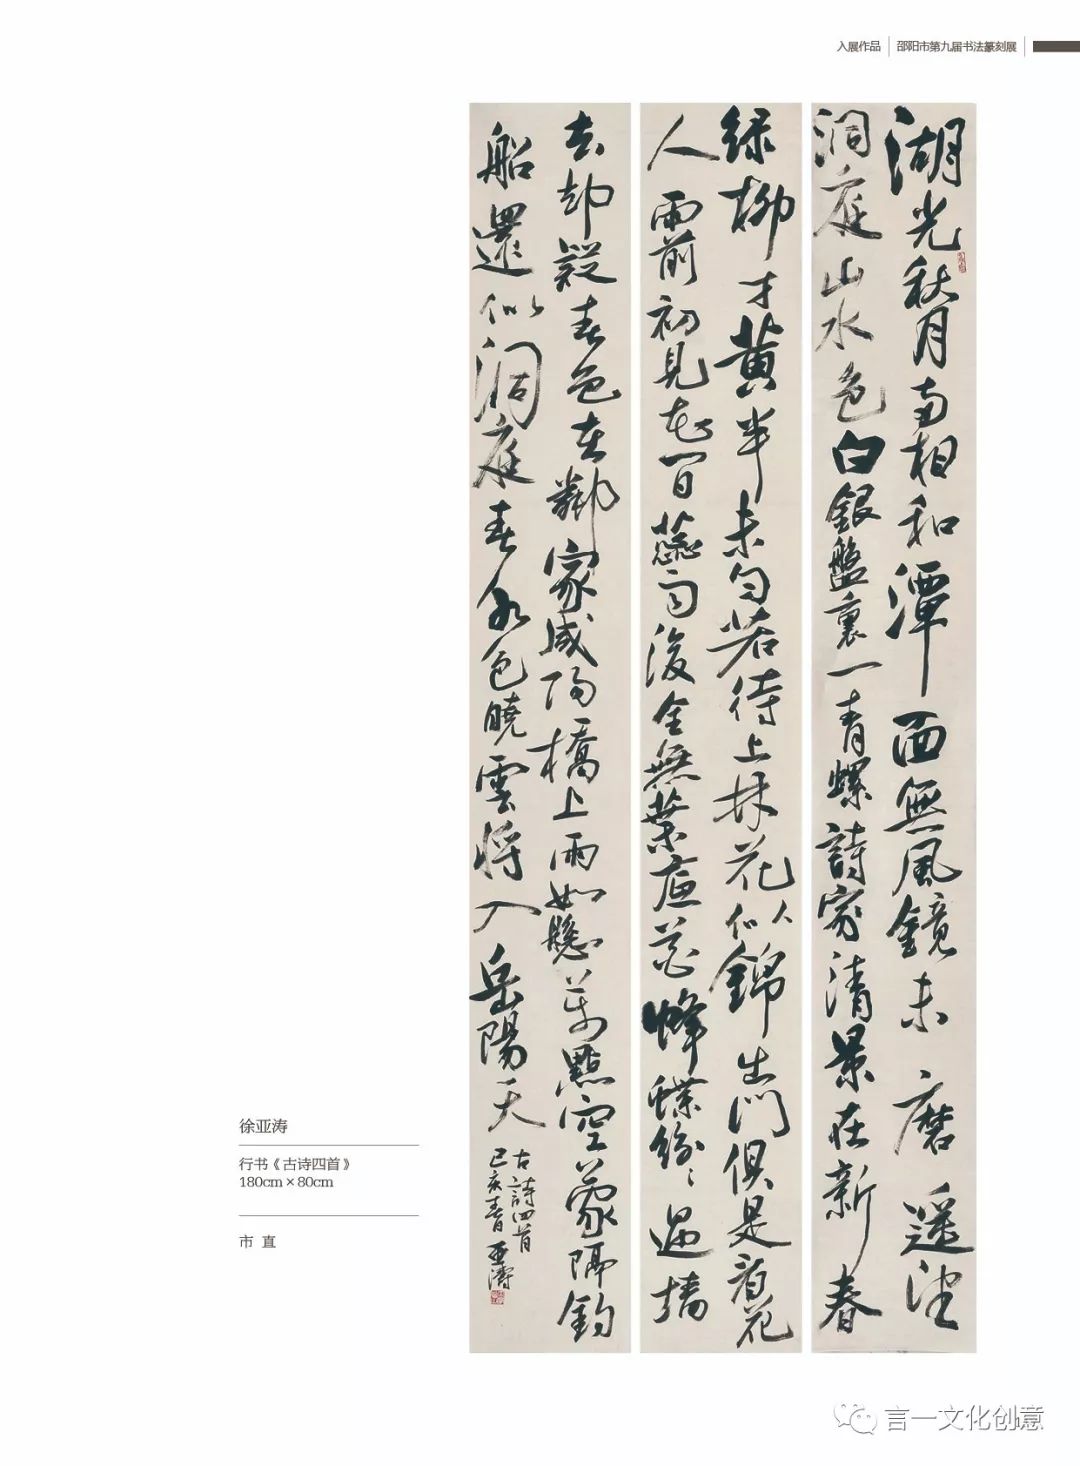 入展作品 邵阳市第九届书法篆刻展
湖光秋月兩相和潭面無風鏡未磨遥望
洞庭山水色白銀盤裏一青螺詩家清景在新春
绿柳才黄半未匀若待上林花似錦出門俱是看花
人雨前初見花間蕊雨後全無葉底花蜂蝶紛〻過墙
去却疑春色在鄰家咸陽橋上雨如懸萬點空蒙隔釣
船還似洞庭春水色曉雲將入岳陽天
古詩四首
己亥春 亚濤
徐亚涛
行书《古诗四首》
180cm×80cm
市 直
言一文化创意